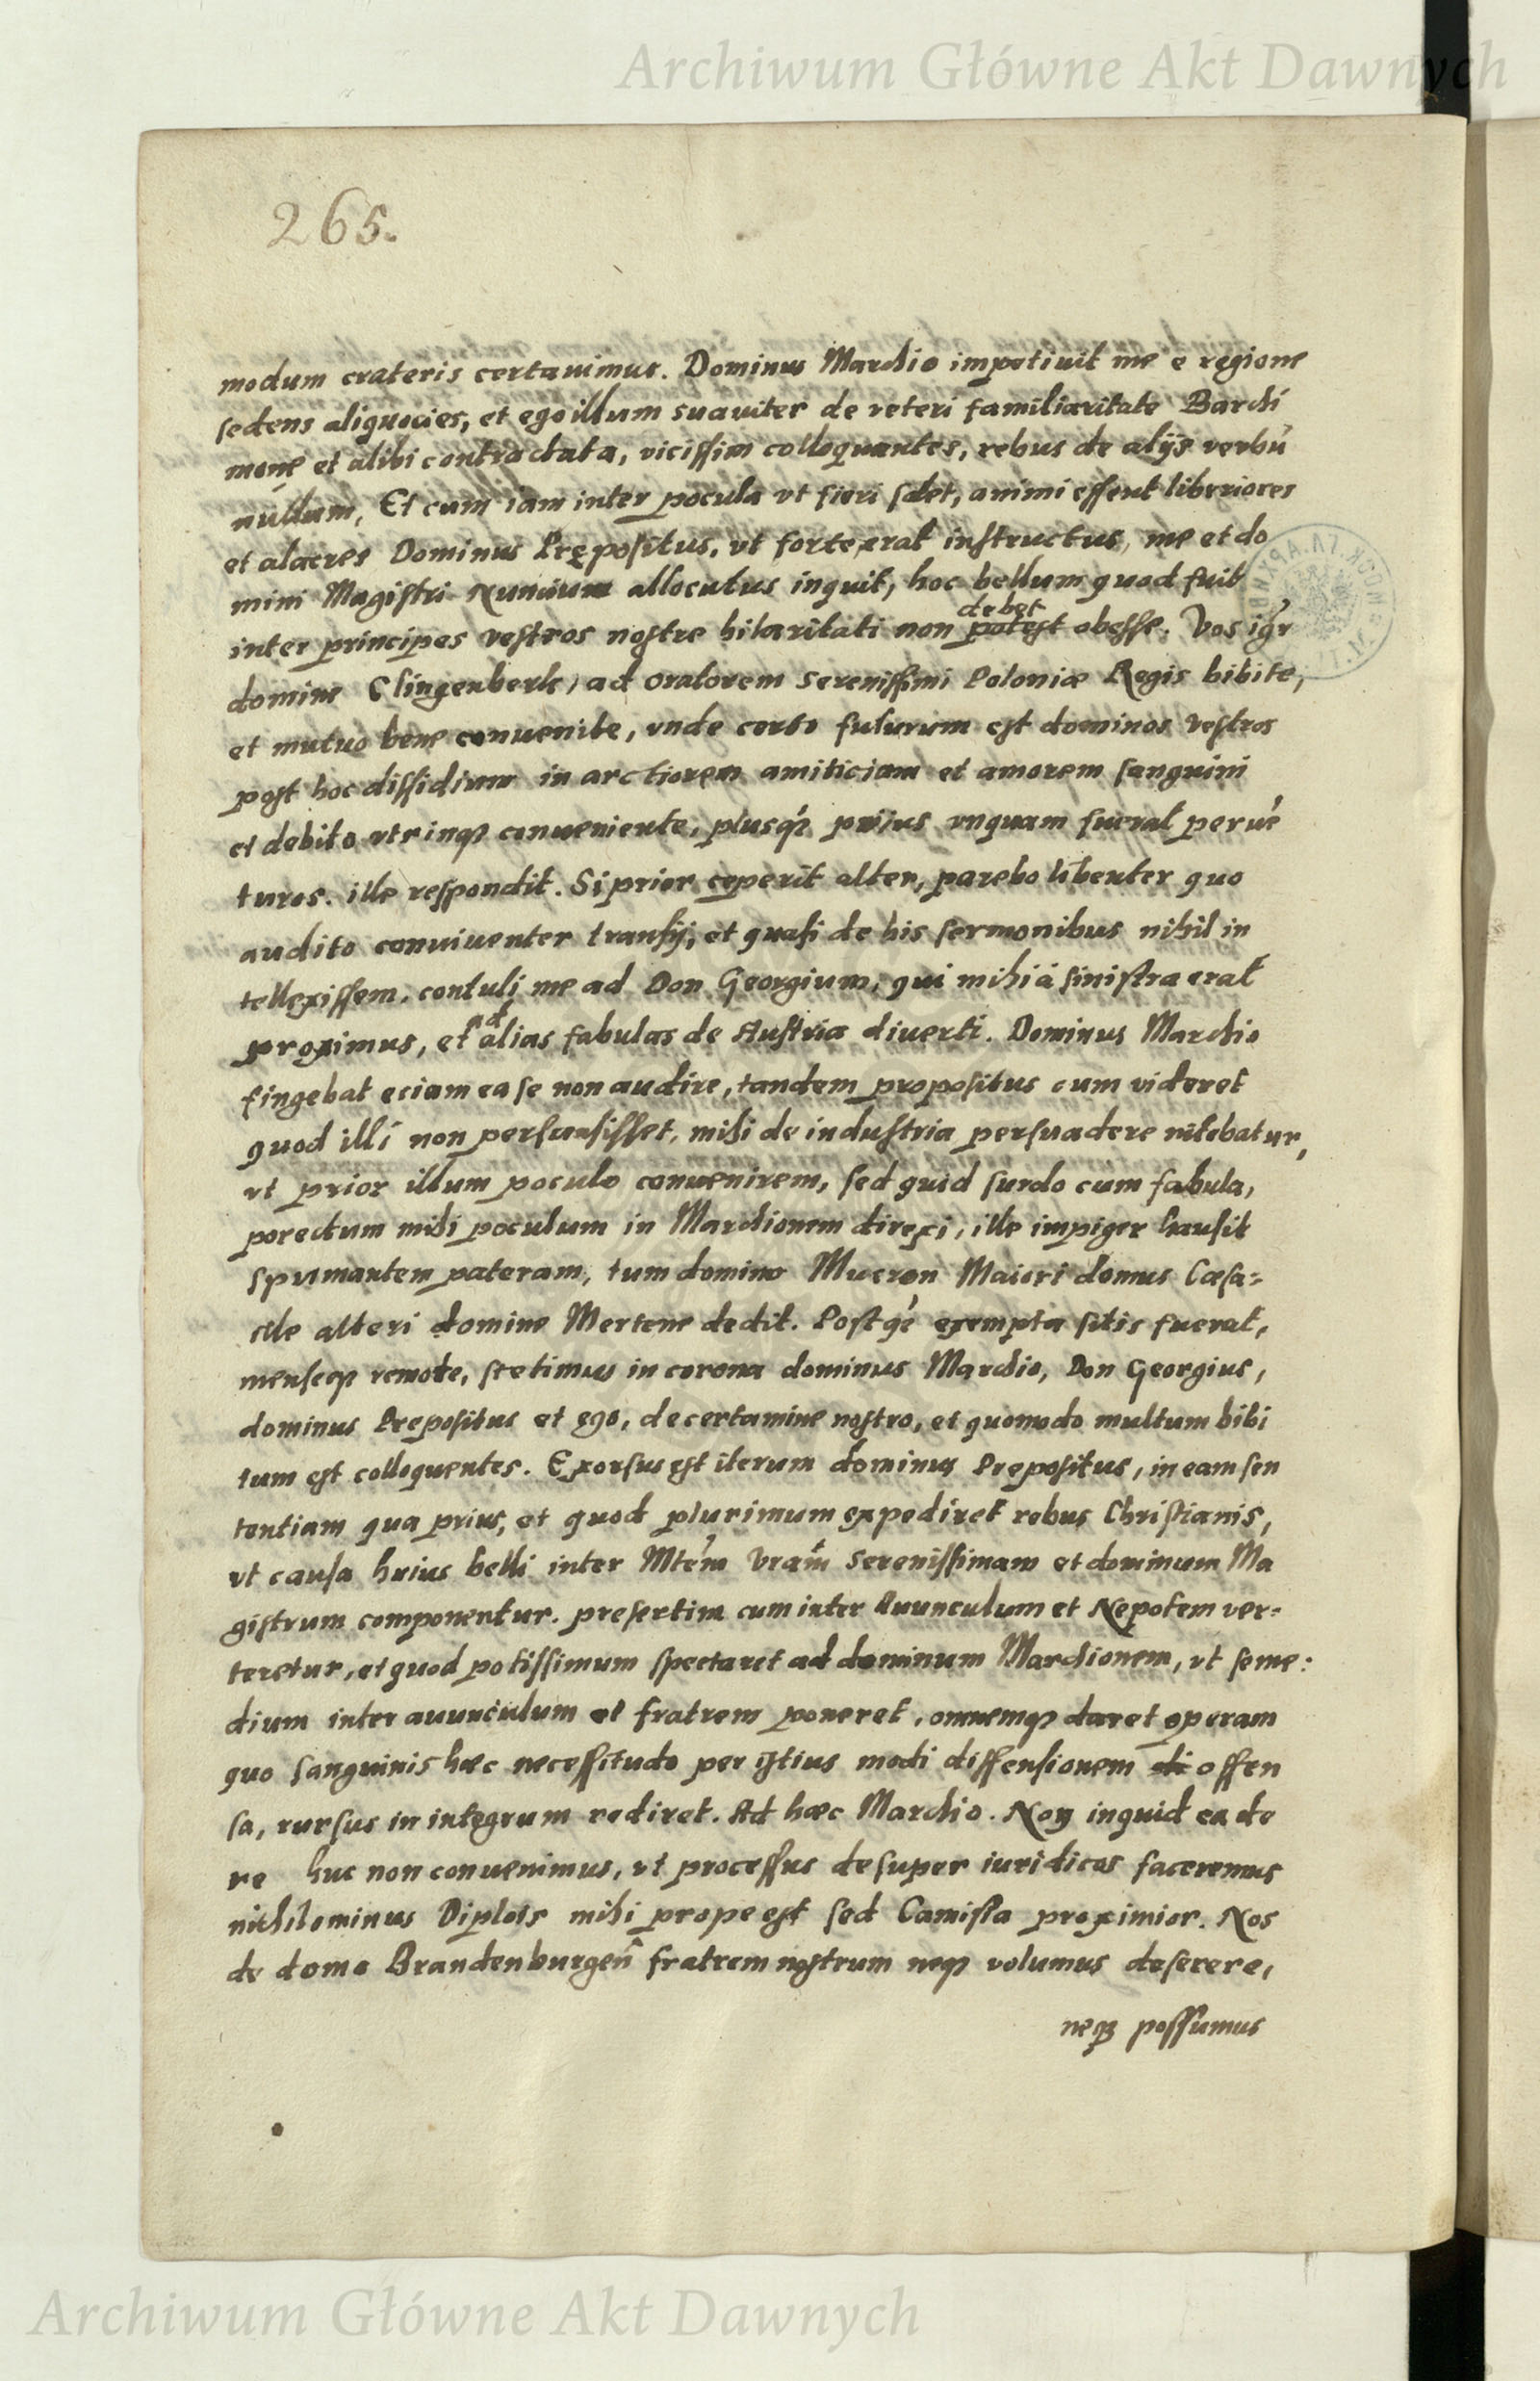 Archiwum Główne Akt Dawnych
265.
modum crateris certauimus. Dominus Marchio impetiuit me e regione
sedens aliquocies, et ego illum suauiter de veteri familiaritate Barchi
mone et alibi contractata, vicissim colloquentes, rebus de alijs verbū
nullum, Et cum iam inter pocula vt fieri solet, animi essent libériores
et alacres Dominus Prępositus, vt forte erat instructus, me et do
mini Magistri Nuncium allocutus inquit, hoc bellum quod fuit
inter principes vestros nostre hilaritati non potest debet obesse. Vos igr̄
domine Clingenberk, ad oratorem Serenissimi Poloniæ Regis bibite,
et mutuo bene conuenite, vnde certo futurum est dominos vestros
post hoc dissidium in arctiorem amiticiam et amorem sanguini
et debito vtrinq₃ conueniente, plusq́₃ prius vnquam fuerat peruē
turos. ille respondit. Si prior ceperit alter, parebo libenter quo
audito conniuenter transij, et quasi de his sermonibus nihil in
tellexissem, contuli me ad Don Georgium, qui mihi á sinistra erat
proximus, et ad alias fabulas de Austria diuerti. Dominus Marchio
fingebat eciam ea se non audire, tandem prepositus cum videret
quod illi non persuasisset, mihi de industria persuadere nitebatur,
vt prior illum poculo conuenirem, sed quid surdo cum fabula,
porectum mihi poculum in Marchionem direxi, ille impiger hausit
spumantem pateram, tum domino Mucron Maiori domus Cæsa-
ille alteri domine Mertene dedit. Postq́ē exempta sitis fuerat,
menseq₃ remote, stetimus in corona dominus Marchio, Don Georgius,
dominus Prepositus et ego, de certamine nostro, et quomodo multum bibi
tum est colloquentes. Exorsus est iterum dominus Prepositus, in eam sen
tentiam qua prius, et quod plurimum expediret rebus Christianis,
vt causa huius belli inter Mtēm Vrām Serenissimam et dominum Ma
gistrum componentur. presertim cum inter Auunculum et Nepotem ver-
teretur, et quod potissimum spectaret ad dominum Marchionem, vt se me:
dium inter auunculum et fratrem poneret, omnemq₃ daret operam
quo sanguinis hæc necessitudo per istius modi dissensionem di offen
sa, rursus in integrum rediret. Ad hæc Marchio. Non inquid ea de
re huc non conuenimus, vt processus desuper iuridicos faceremus
nichilominus Diplois mihi prope est sed Camisia proximior. Nos
de domo Brandenburgeñ fratrem nostrum neq₃ volumus deserere,
neq₃ possumus
Archiwum Główne Akt Dawnych